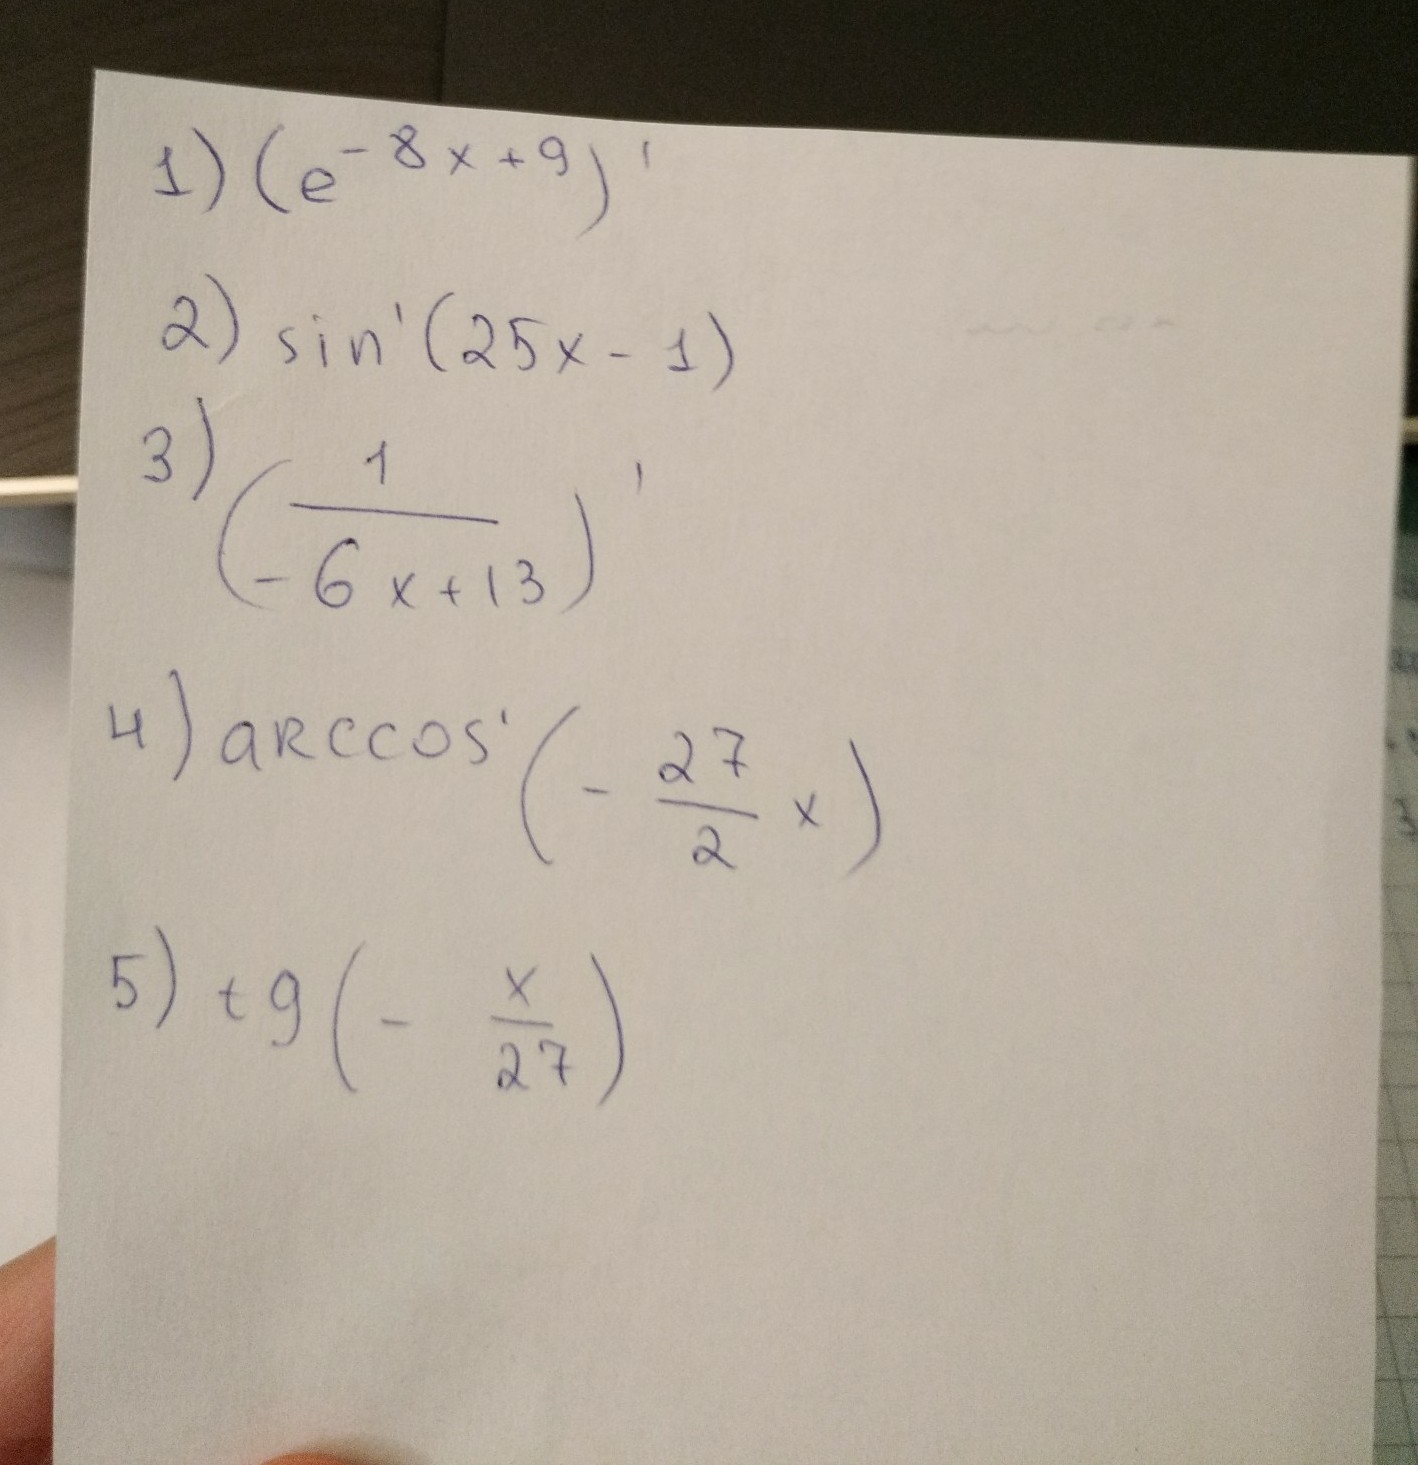 1) (e^{-8x+9})'
2) sin'(25x-1)
3) (1/(-6x+13))'
4) arccos'(-27/2 x)
5) tg(-x/27)